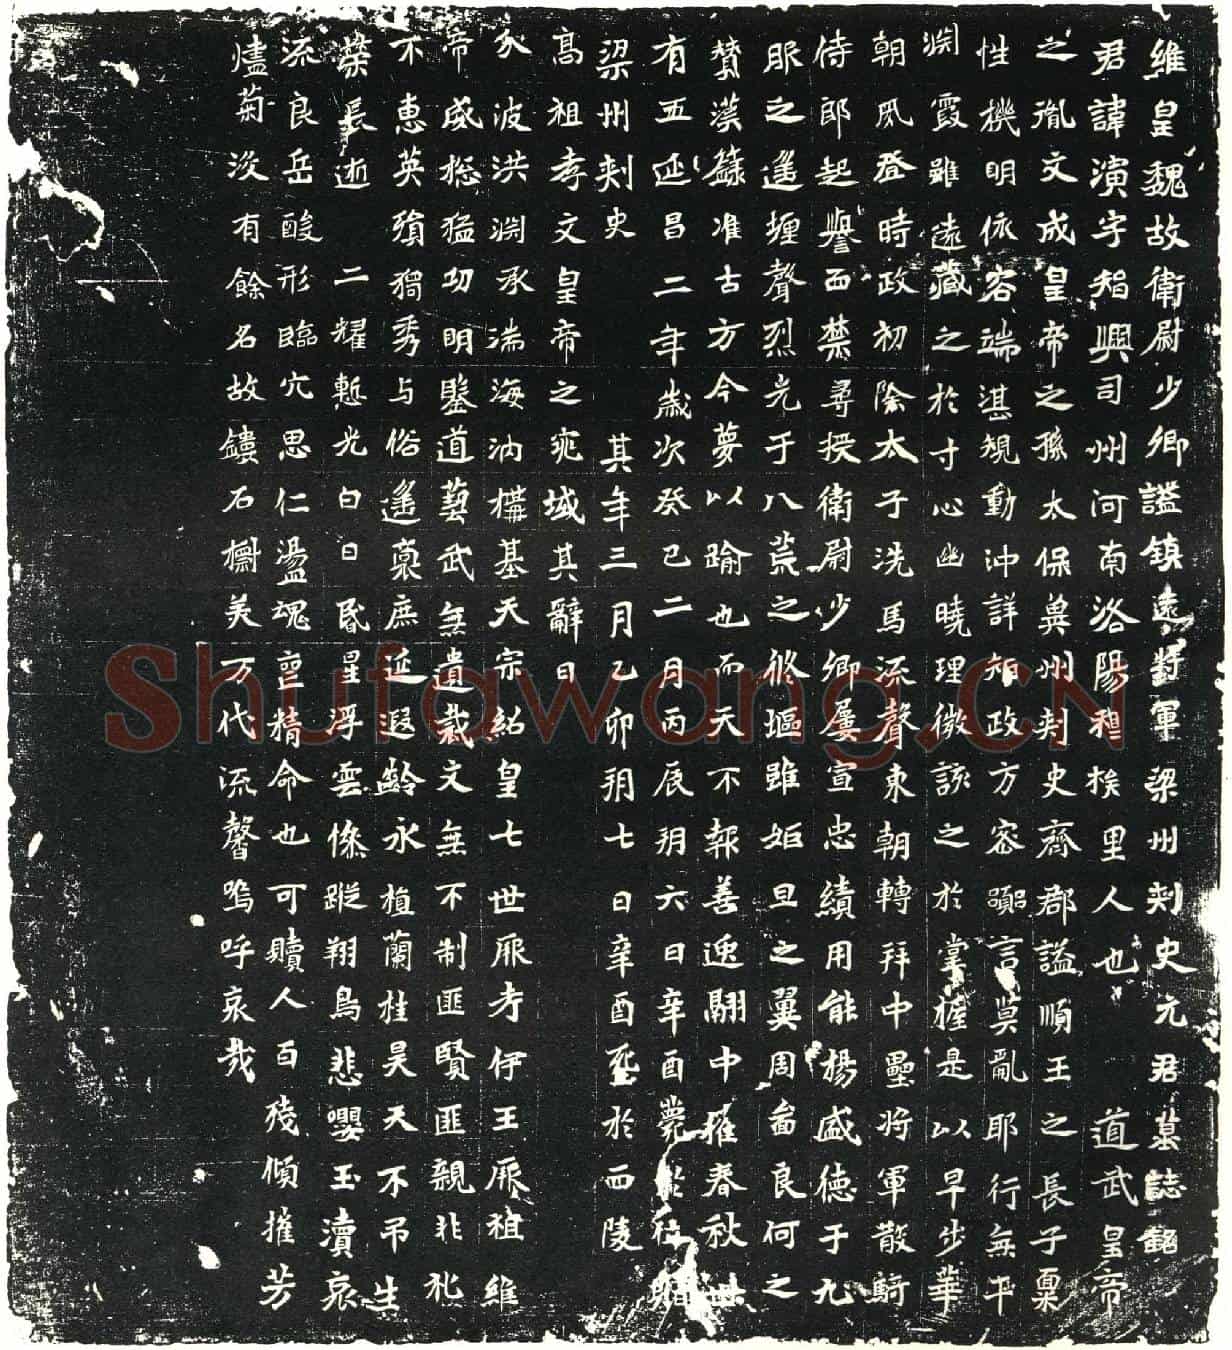 維皇魏故衛尉少卿謚鎮遠將軍梁州刺史元君墓誌銘
君諱演字智興司州河南洛陽穆族里人也 道武皇帝
之胤文成皇帝之孫太保冀州刺史齊郡謚順王之長子稟
性機明依容端湛規動沖詳矩政方密嘿言莫亂耶行無平
淵霞雖遠藏之於寸心幽曉理微該之於掌握是以早步華
朝夙登時政初除太子洗馬流聲東朝轉拜中壘將軍散騎
侍郎起譽西禁尋授衛尉少卿屢宣忠績用能楊盛德于九
服之遙壃聲烈光于八荒之脩區雖姬旦之翼周畱良何之
贊漢錄准古方今夢以踰也而天不報善逸翮中摧春秋卅
有五延昌二年歲次癸巳二月丙辰朔六日辛酉薨於 贈
梁州刺史 其年三月乙卯朔七日辛酉葬於西陵
高祖孝文皇帝之兆域其辭曰
分波洪淵承湍海汭構基天宗紹皇七世厥考伊王厥祖維
帝咸摠猛功明鑒道藝武無遺裁文無不制匪賢匪親非礼
不惠英殞獨秀与俗遙稟庶延遐齡永植蘭桂昊天不弔生
榮長逝 二耀慙光白日昏星浮雲慘蹤翔鳥悲嚶玉瀆哀
流良岳酸形臨穴思仁盪魂亶精命也可贖人百殘傾摧芳
燼菊浚有餘名故鏤石櫥美万代流馨嗚呼哀哉
Shufawang.CN